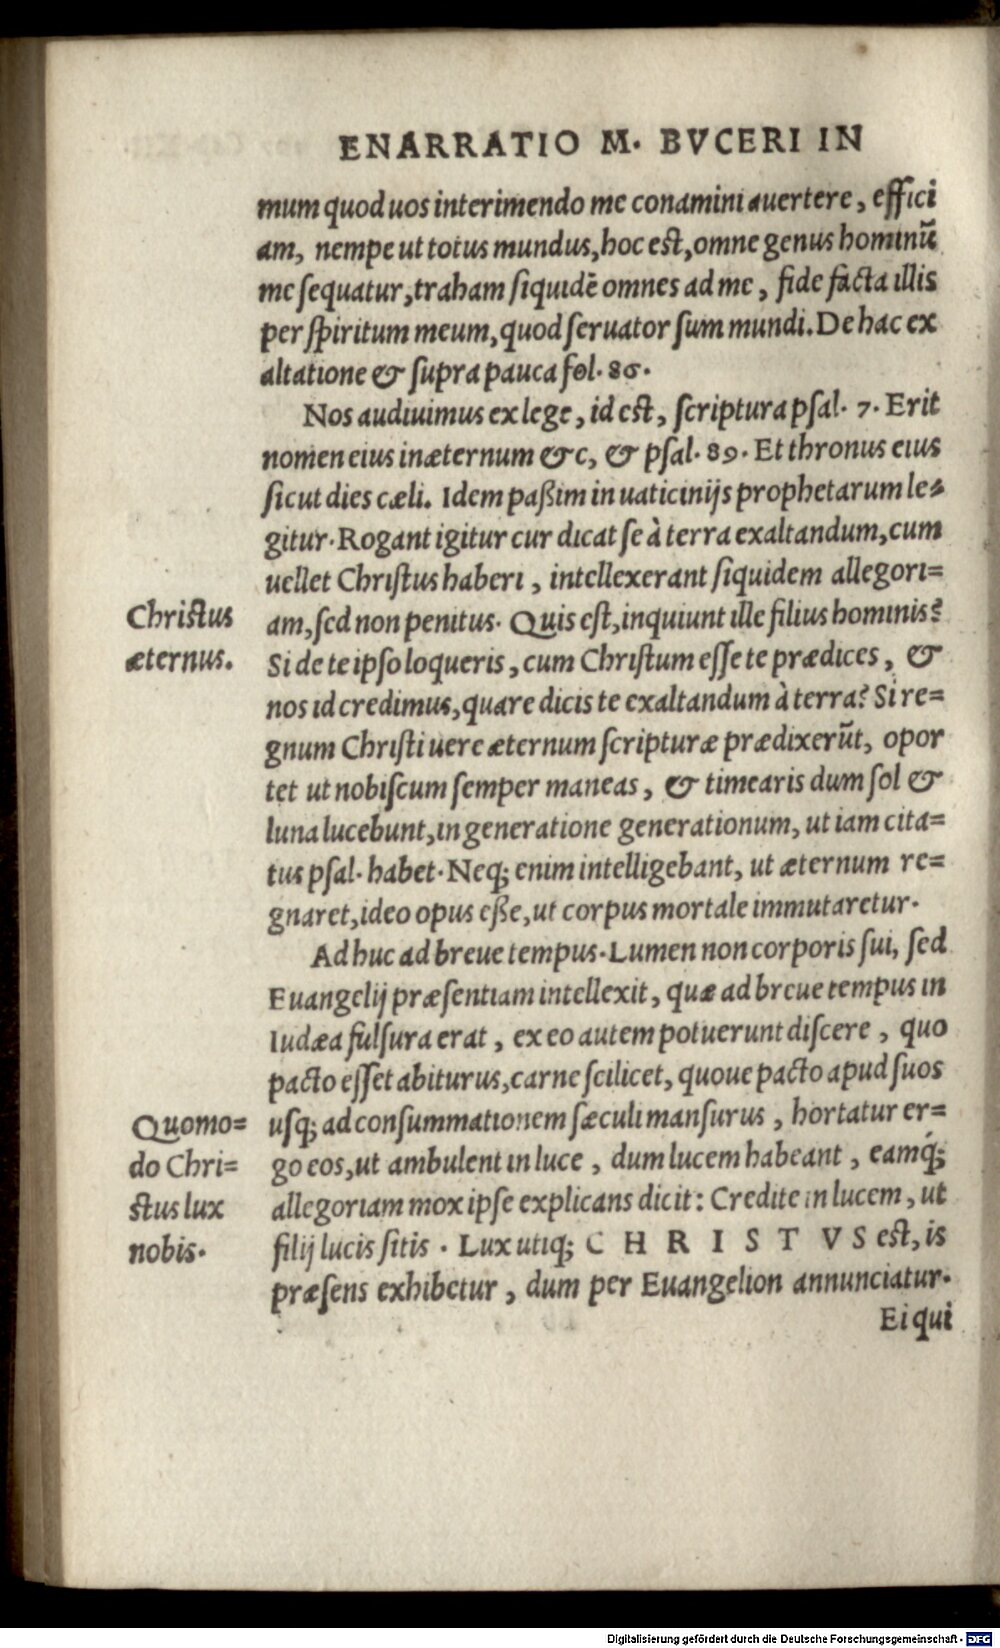 ENARRATIO M. BVCERI IN
mum quod uos interimendo me conamini auertere, effici
am, nempe ut totus mundus, hoc est, omne genus hominū
me sequatur, traham siquidē omnes ad me, fide facta illis
per spiritum meum, quod seruator sum mundi. De hac ex
altatione & supra pauca fol. 86.
Nos audiuimus ex lege, id est, scriptura psal. 7. Erit
nomen eius in æternum &c, & psal. 89. Et thronus eius
sicut dies cæli. Idem paßim in uaticinijs prophetarum le=
gitur. Rogant igitur cur dicat se à terra exaltandum, cum
uellet Christus haberi, intellexerant siquidem allegori=
Christus
æternus.
am, sed non penitus. Quis est, inquiunt ille filius hominis?
Si de te ipso loqueris, cum Christum esse te prædices, &
nos id credimus, quare dicis te exaltandum à terra? Si re=
gnum Christi uere æternum scripturæ prædixerūt, opor
tet ut nobiscum semper maneas, & timearis dum sol &
luna lucebunt, in generatione generationum, ut iam cita=
tus psal. habet. Neq; enim intelligebant, ut æternum re=
gnaret, ideo opus eße, ut corpus mortale immutaretur.
Ad huc ad breue tempus. Lumen non corporis sui, sed
Euangelij præsentiam intellexit, quæ ad breue tempus in
Iudæa fulsura erat, ex eo autem potuerunt discere, quo
pacto esset abiturus, carne scilicet, quoue pacto apud suos
Quomo=
do Chri=
stus lux
nobis.
usq; ad consummationem sæculi mansurus, hortatur er=
go eos, ut ambulent in luce, dum lucem habeant, eamq́;
allegoriam mox ipse explicans dicit: Credite in lucem, ut
filij lucis sitis. Lux utiq; C H R I S T V S est, is
præsens exhibetur, dum per Euangelion annunciatur.
Ei qui
Digitalisierung gefördert durch die Deutsche Forschungsgemeinschaft - DFG